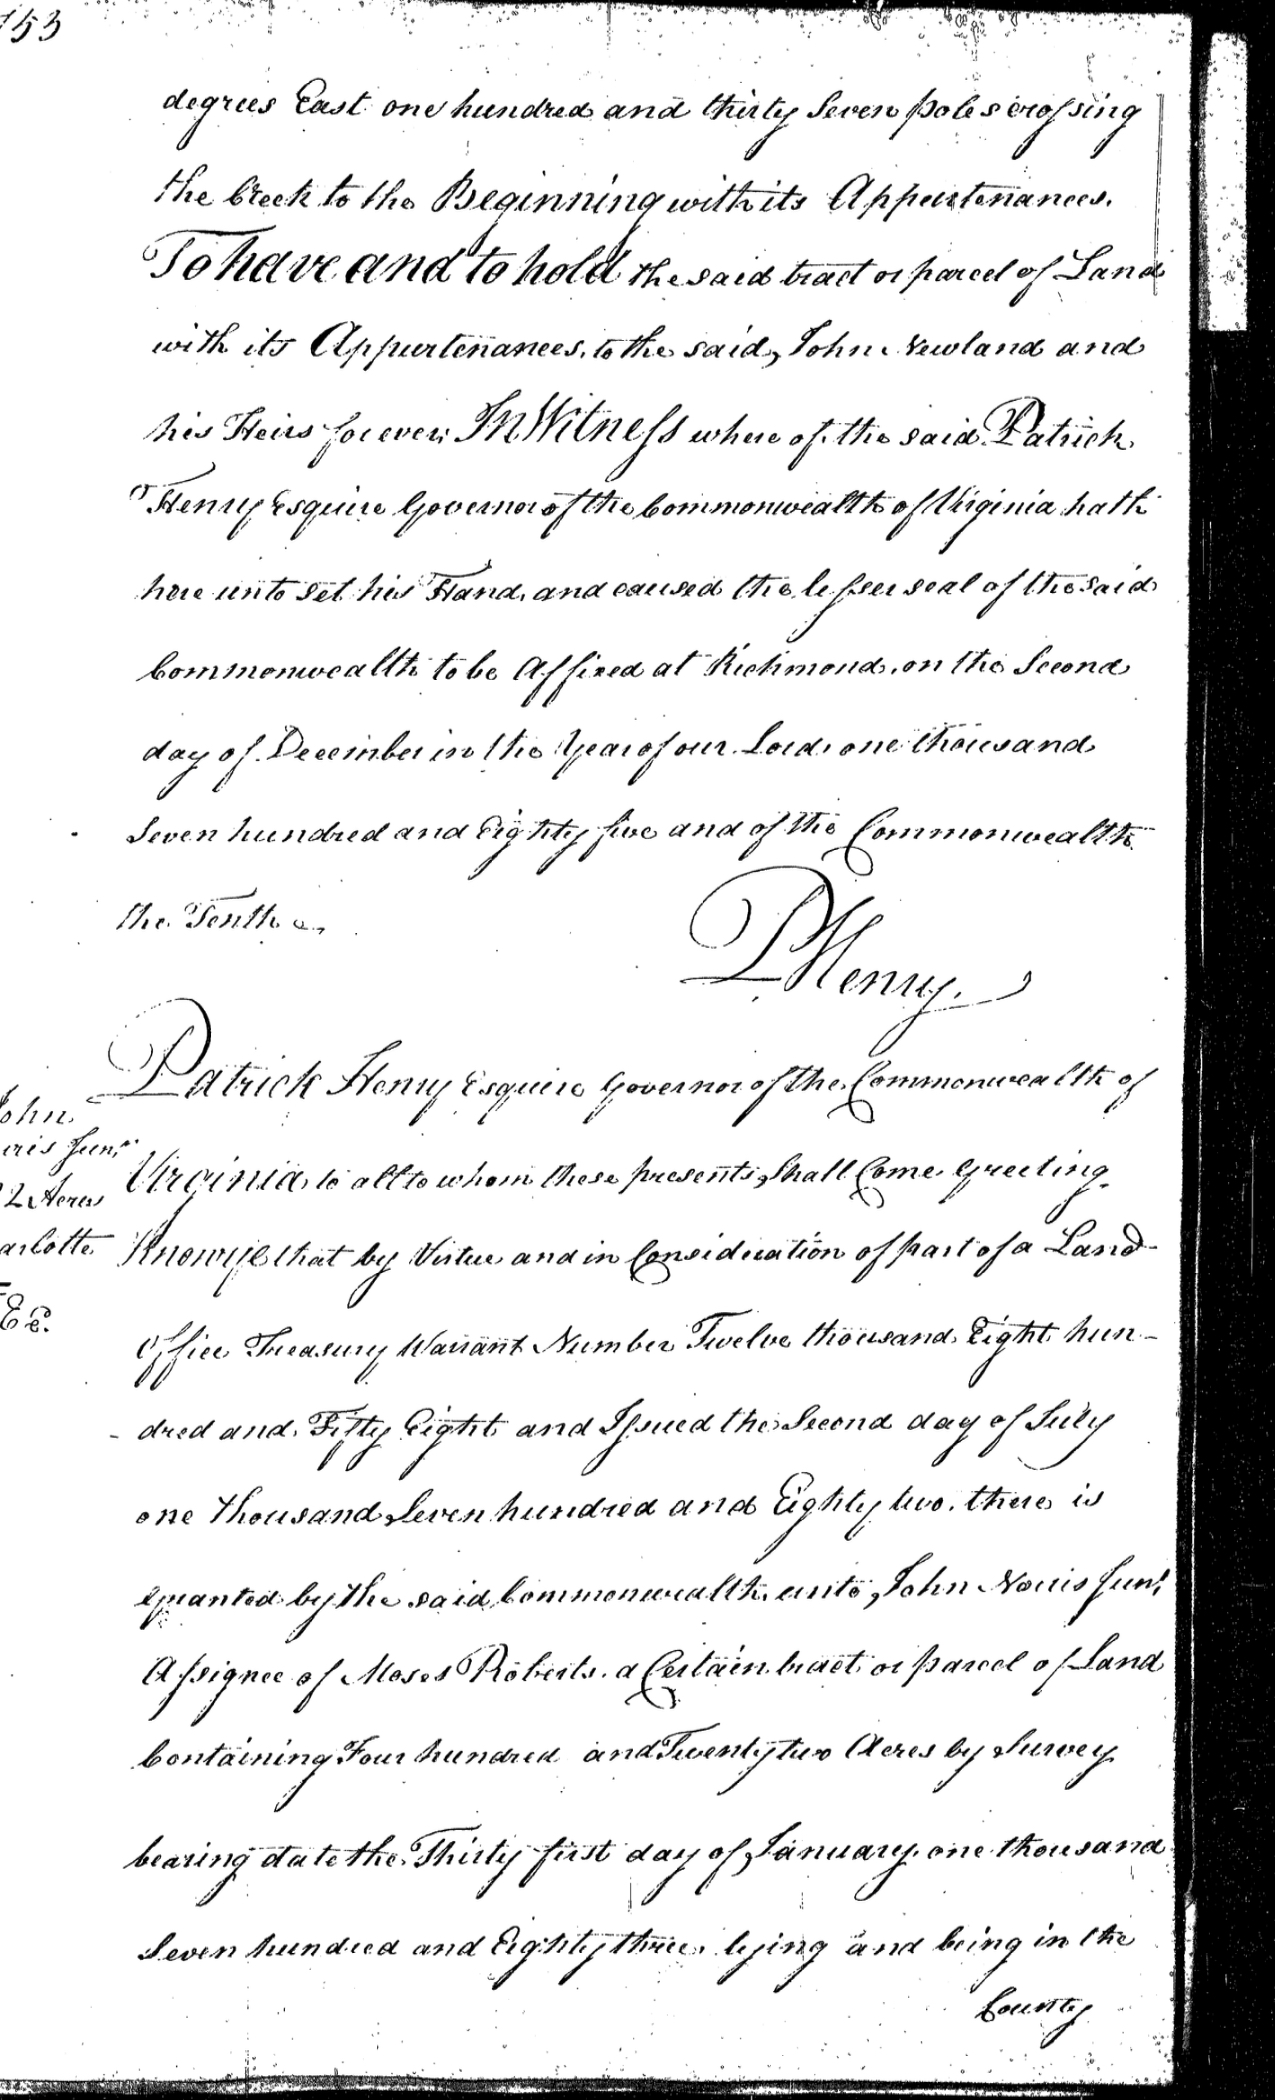 153
degrees East one hundred and thirty Seven poles crossing
the Creek to the Beginning with its Appurtenances.
To have and to hold the said tract or parcel of Land
with its Appurtenances, to the said, John Newland and
his Heirs forever, In Witness where of the said Patrick
Henry Esquire Governor of the Commonwealth of Virginia hath
here unto set his Hand, and caused the lesser seal of the said
Commonwealth to be Affixed at Richmond, on the Second
day of December in the Year of our Lord, one thousand
Seven hundred and Eighty five and of the Commonwealth
the Tenth
P Henry.
Patrick Henry Esquire Governor of the Commonwealth of
Virginia, to all to whom these presents, Shall Come Greeting.
Know ye that by Virtue and in Consideration of part of a Land
Office Treasury Warrant Number Twelve thousand Eight hun-
dred and Fifty Eight and Issued the Second day of July
one thousand Seven hundred and Eighty two. there is
granted by the said Commonwealth unto, John Norris Junr
Assignee of Moses Roberts. a Certain tract or parcel of Land
Containing Four hundred and Twenty two Acres by Survey
bearing date the Thirty first day of January one thousand
Seven hundred and Eighty three. lying and being in the
County
John
rris Junr
2 Acres
arlotte
Ed.